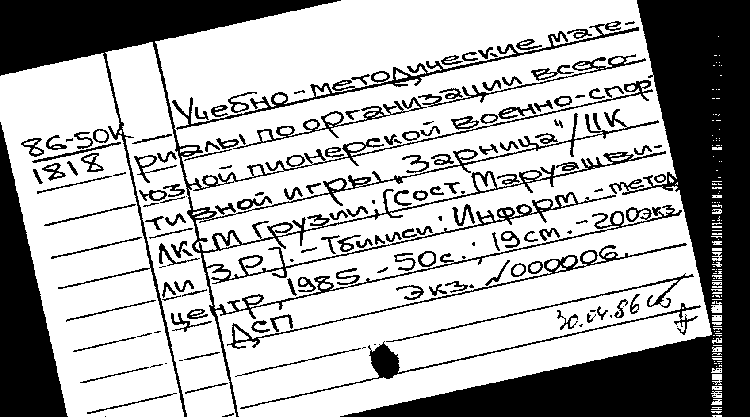 Учебно-методические мате-
86-50К риалы по организации всесо-
1818 юзной пионерской военно-спор
тивной игры „Зарница"/ЦК
ЛКСМ Грузии; [Сост. Маруашви-
ли З.Р.]. - Тбилиси: Информ. - метод.
центр, 1985. - 50с.; 19см. - 200экз.
ДСП Экз. №000006.
30.04.86